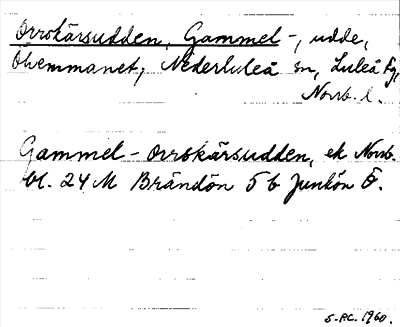 Orrskärsudden, Gammel-, udde,
Hemmanet, Nederluleå sn, Luleå tg,
Norrb. l.
Gammel-orrskärsudden, ek Norrb.
bl. 24 M Brändön 5 b Junkön Ö.
S-P.C. 1960.